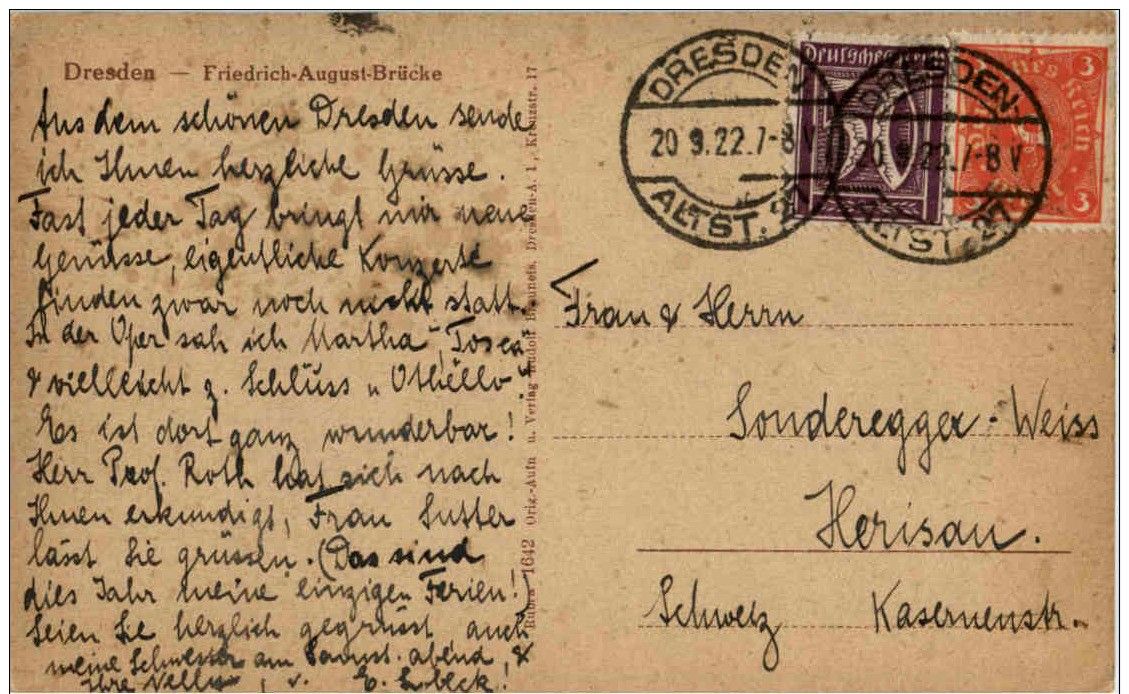 Dresden — Friedrich-August-Brücke
Aus dem schönen Dresden sende
ich Ihnen herzliche Grüsse.
Fast jeder Tag bringt mir neue
Genüsse, eigentliche Konzerte
finden zwar noch nicht statt.
In der Oper sah ich „Martha“, Tosca
& vielleicht z. Schluss „Othello“.
Es ist dort ganz wunderbar!
Herr Prof. Roth hat sich nach
Ihnen erkundigt, Frau Sutter
lässt Sie grüssen. (Das sind
dies Jahr meine einzigen Ferien!)
Seien Sie herzlich gegrüsst, auch
meine Schwester am abend, &
ihre
1642 Orig.-Aufn u. Verlag Rudolf Dresden-A. 1, Kreuzstr. 17
DRESDEN-
20 9.22.7-8 V
ALTST. 2
DRESDEN-
22.7-8 V
ALTST. 27
Deutsches
3
3
3
Frau & Herrn
Sonderegger-Weiss
Herisau.
Schweiz Kasernenstr.